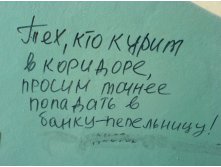 Тех, кто курит
в коридоре,
просим точнее
попадать в
банку-пепельницу!